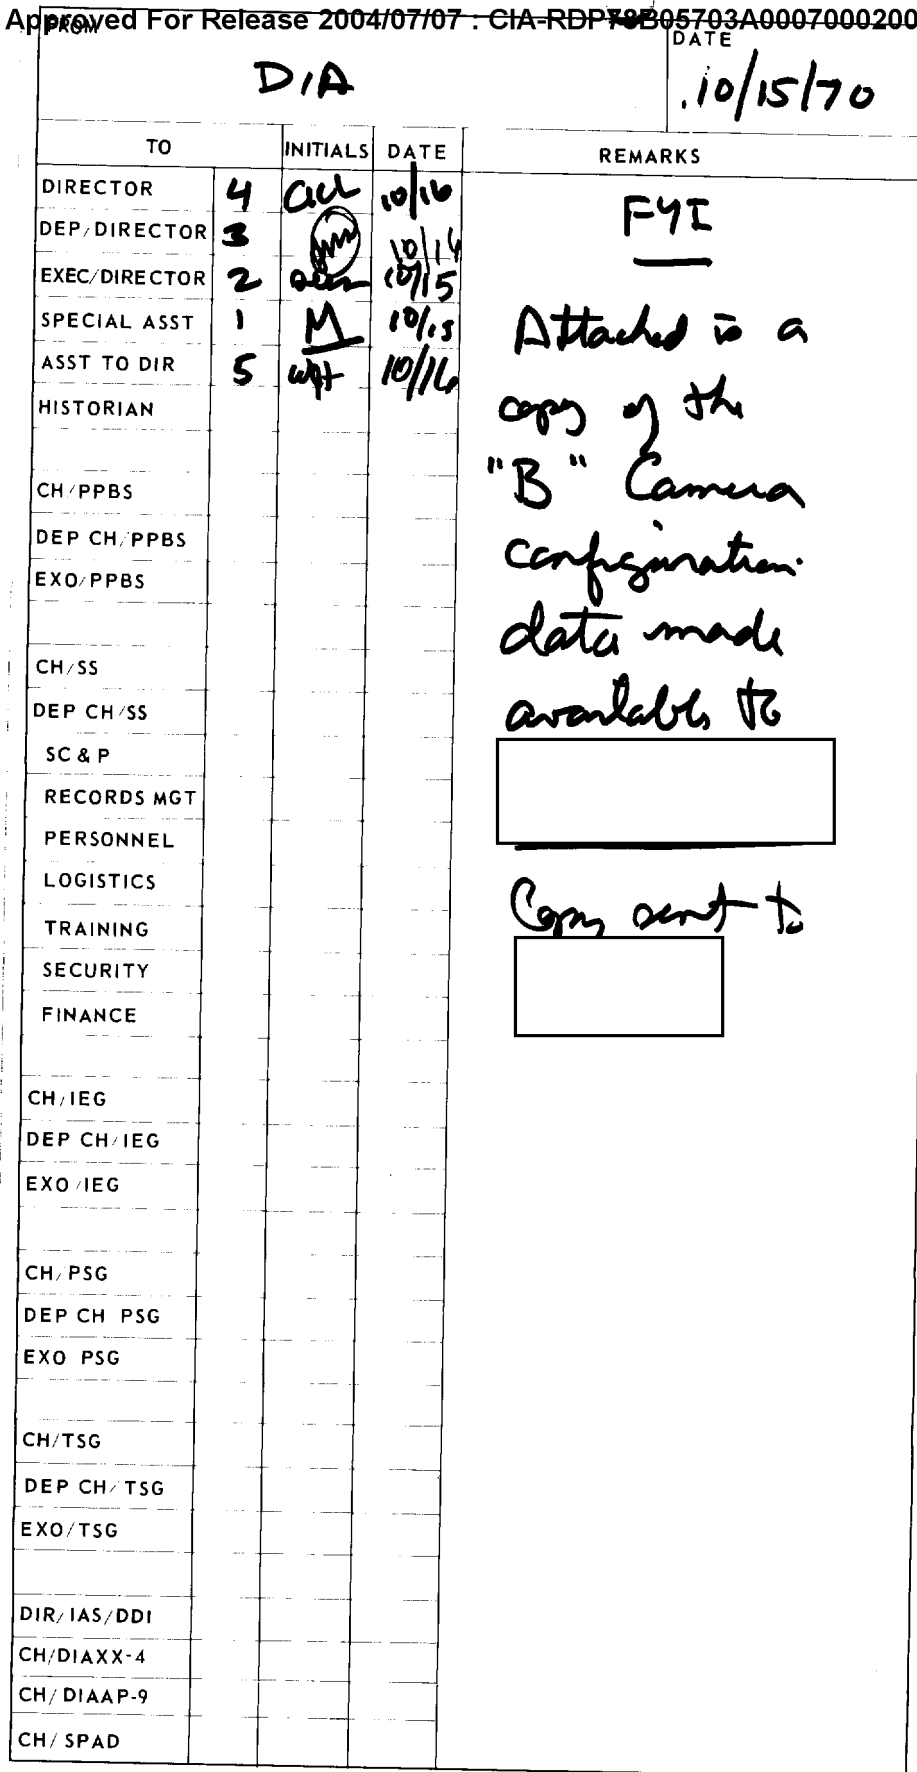 Approved For Release 2004/07/07 : CIA-RDP78B05703A0007000200
FROM
DIA
DATE
10/15/70
TO INITIALS DATE REMARKS
DIRECTOR 4 10/16
DEP/DIRECTOR 3 10/16
EXEC/DIRECTOR 2 10/15
SPECIAL ASST 1 M 10/15
ASST TO DIR 5 10/16
HISTORIAN
CH/PPBS
DEP CH/PPBS
EXO/PPBS
CH/SS
DEP CH/SS
SC & P
RECORDS MGT
PERSONNEL
LOGISTICS
TRAINING
SECURITY
FINANCE
CH/IEG
DEP CH/IEG
EXO/IEG
CH/PSG
DEP CH PSG
EXO PSG
CH/TSG
DEP CH/TSG
EXO/TSG
DIR/IAS/DDI
CH/DIAXX-4
CH/DIAAP-9
CH/SPAD
FYI
Attached is a
copy of the
"B" Camera
configuration
data made
available to
Copy sent to